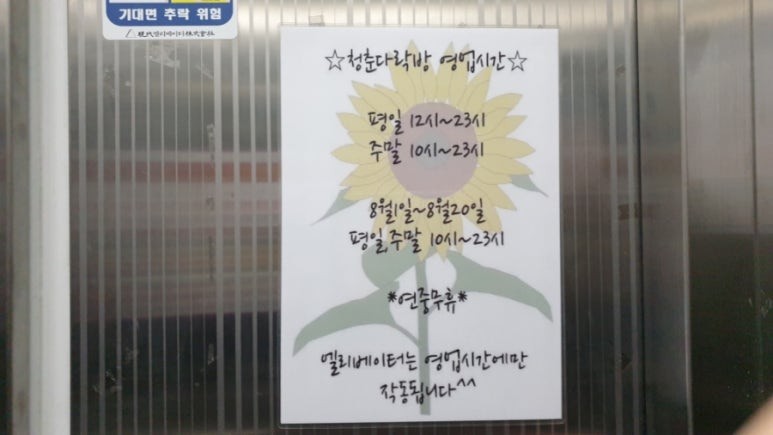 기대면 추락 위험
現代엘리베이터株式會社
☆청춘다락방 영업시간☆
평일 12시~23시
주말 10시~23시
8월1일~8월20일
평일,주말 10시~23시
*연중무휴*
엘리베이터는 영업시간에만
작동됩니다^^